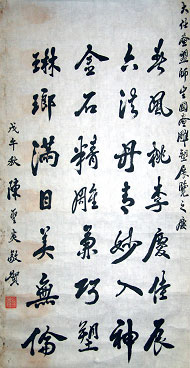 大仕画盟師生国画雕塑展覽之慶
春風桃李慶佳展
六法丹青妙入神
金石精雕兼巧塑
琳瑯滿目美無倫
戊午秋 陳 敬賀